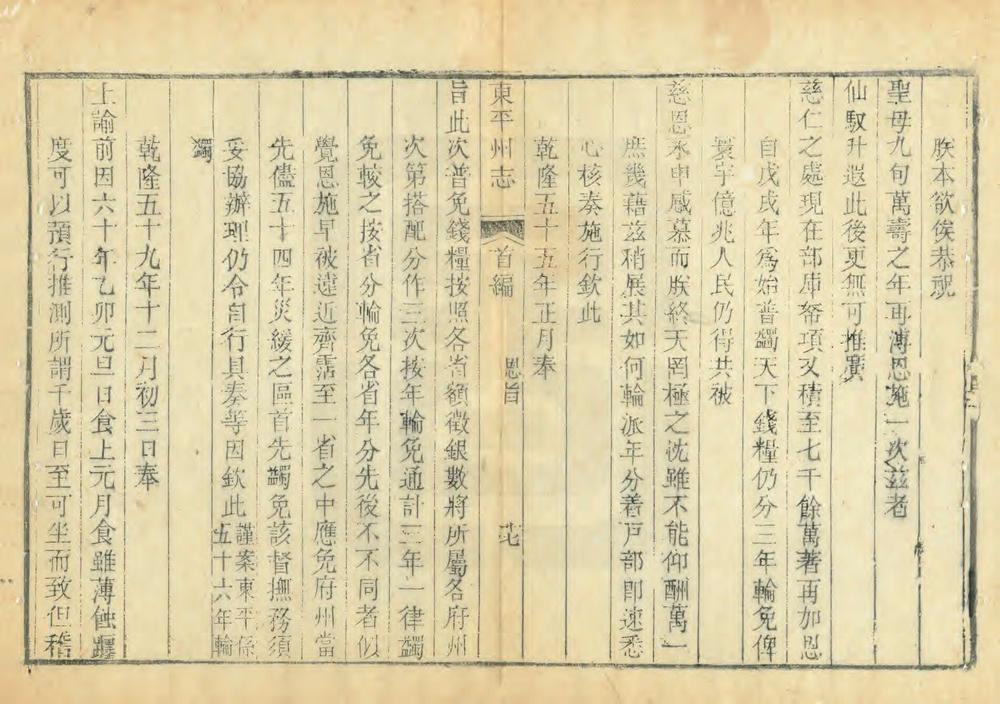 朕本欲俟恭祝
聖母九旬萬壽之年再溥恩施一次茲者
仙馭升遐此後更無可推廣
慈仁之處現在部庫帑項又積至七千餘萬著再加恩
自戊戌年爲始普蠲天下錢糧仍分三年輪免俾
寰宇億兆人民仍得共被
慈恩永申感慕而朕終天罔極之忱雖不能仰酬萬一
庶幾藉茲稍展其如何輪派年分着戶部即速悉
心核奏施行欽此
乾隆五十五年正月奉
東平州志 首編 恩旨 七
旨此次普免錢糧按照各省額徵銀數將所屬各府州
次第搭配分作三次按年輪免通計三年一律蠲
免較之按省分輪免各省年分先後不同者似
覺恩施早被遠近齊霑至一省之中應免府州當
先儘五十四年災緩之區首先蠲免該督撫務須
妥協辦理仍令自行具奏等因欽此謹案東平係五十六年輪
蠲
乾隆五十九年十二月初三日奉
上諭前因六十年乙卯元旦日食上元月食雖薄蝕躔
度可以預行推測所謂千歲日至可坐而致但稽